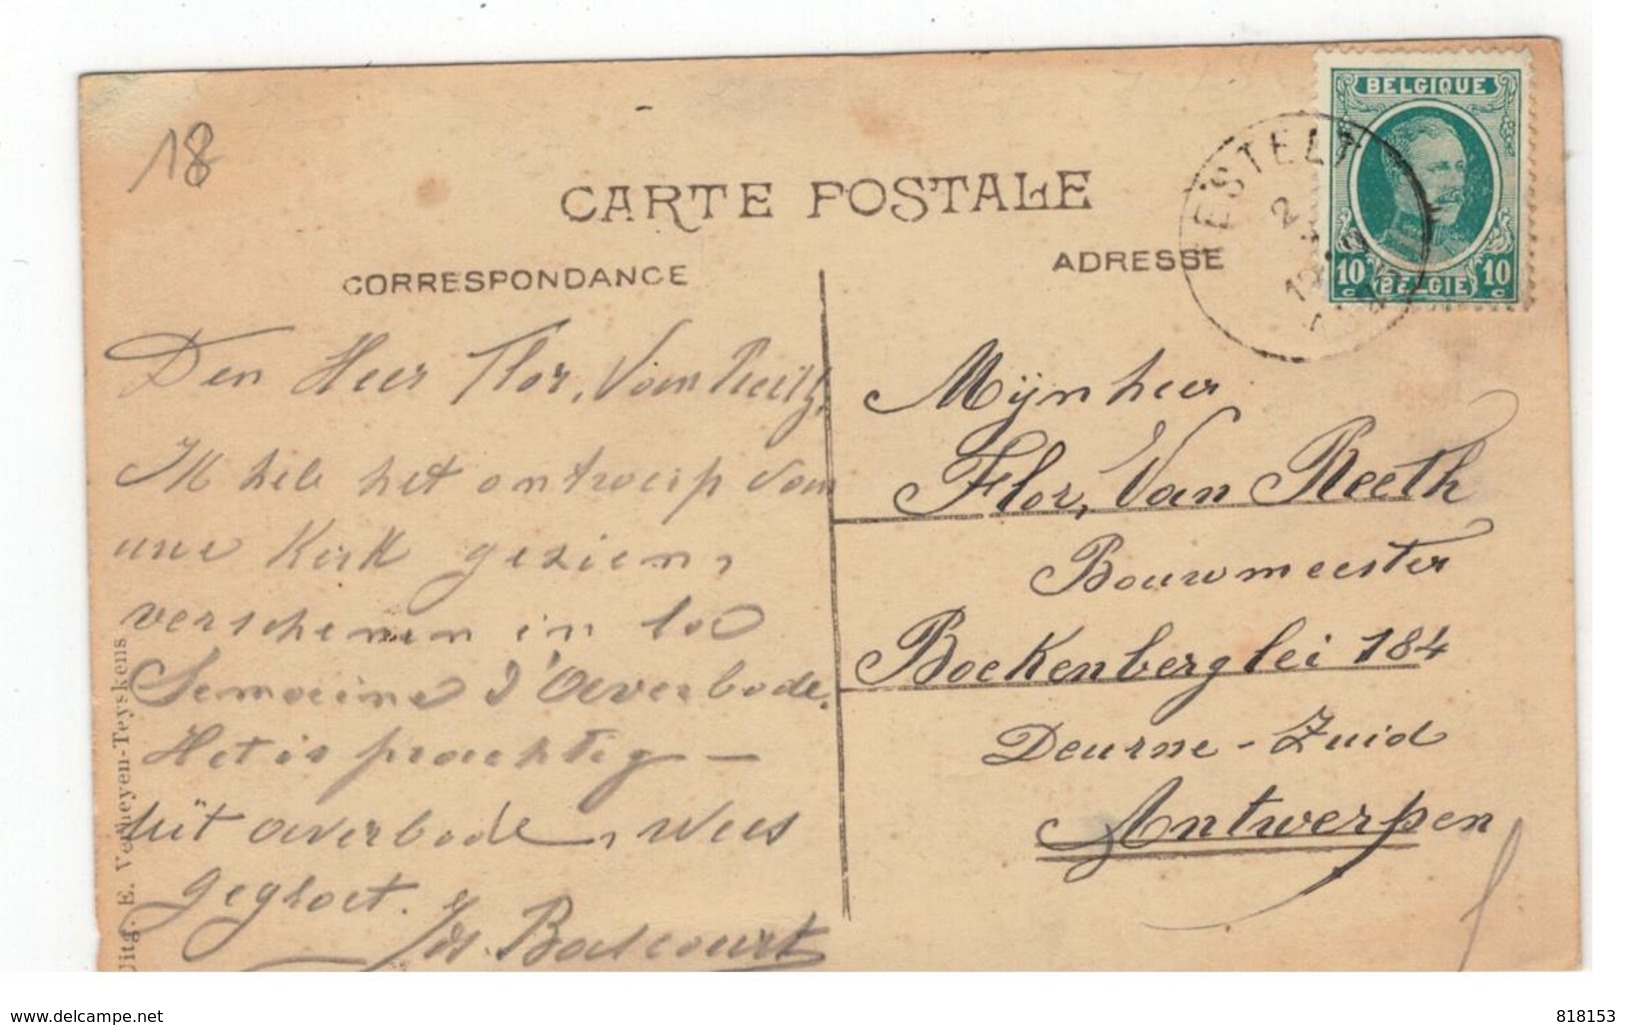 18
CARTE POSTALE
CORRESPONDANCE
ADRESSE
BELGIQUE
10 BELGIE 10
c c
ESTELT
2
Den Heer Flor. Van Reeth,
Ik heb het ontwerp van
uwe Kerk gezien,
verschenen in la
Semaine d'Averbode.
Het is prachtig —
uit Averbode, Wees
gegroet. Jos Bascourt
Mijnheer
Flor, Van Reeth
Bouwmeester
Boekenberglei 184
Deurne-Zuid
Antwerpen
Uitg. E. Verheyen-Teyskens
www.delcampe.net
818153